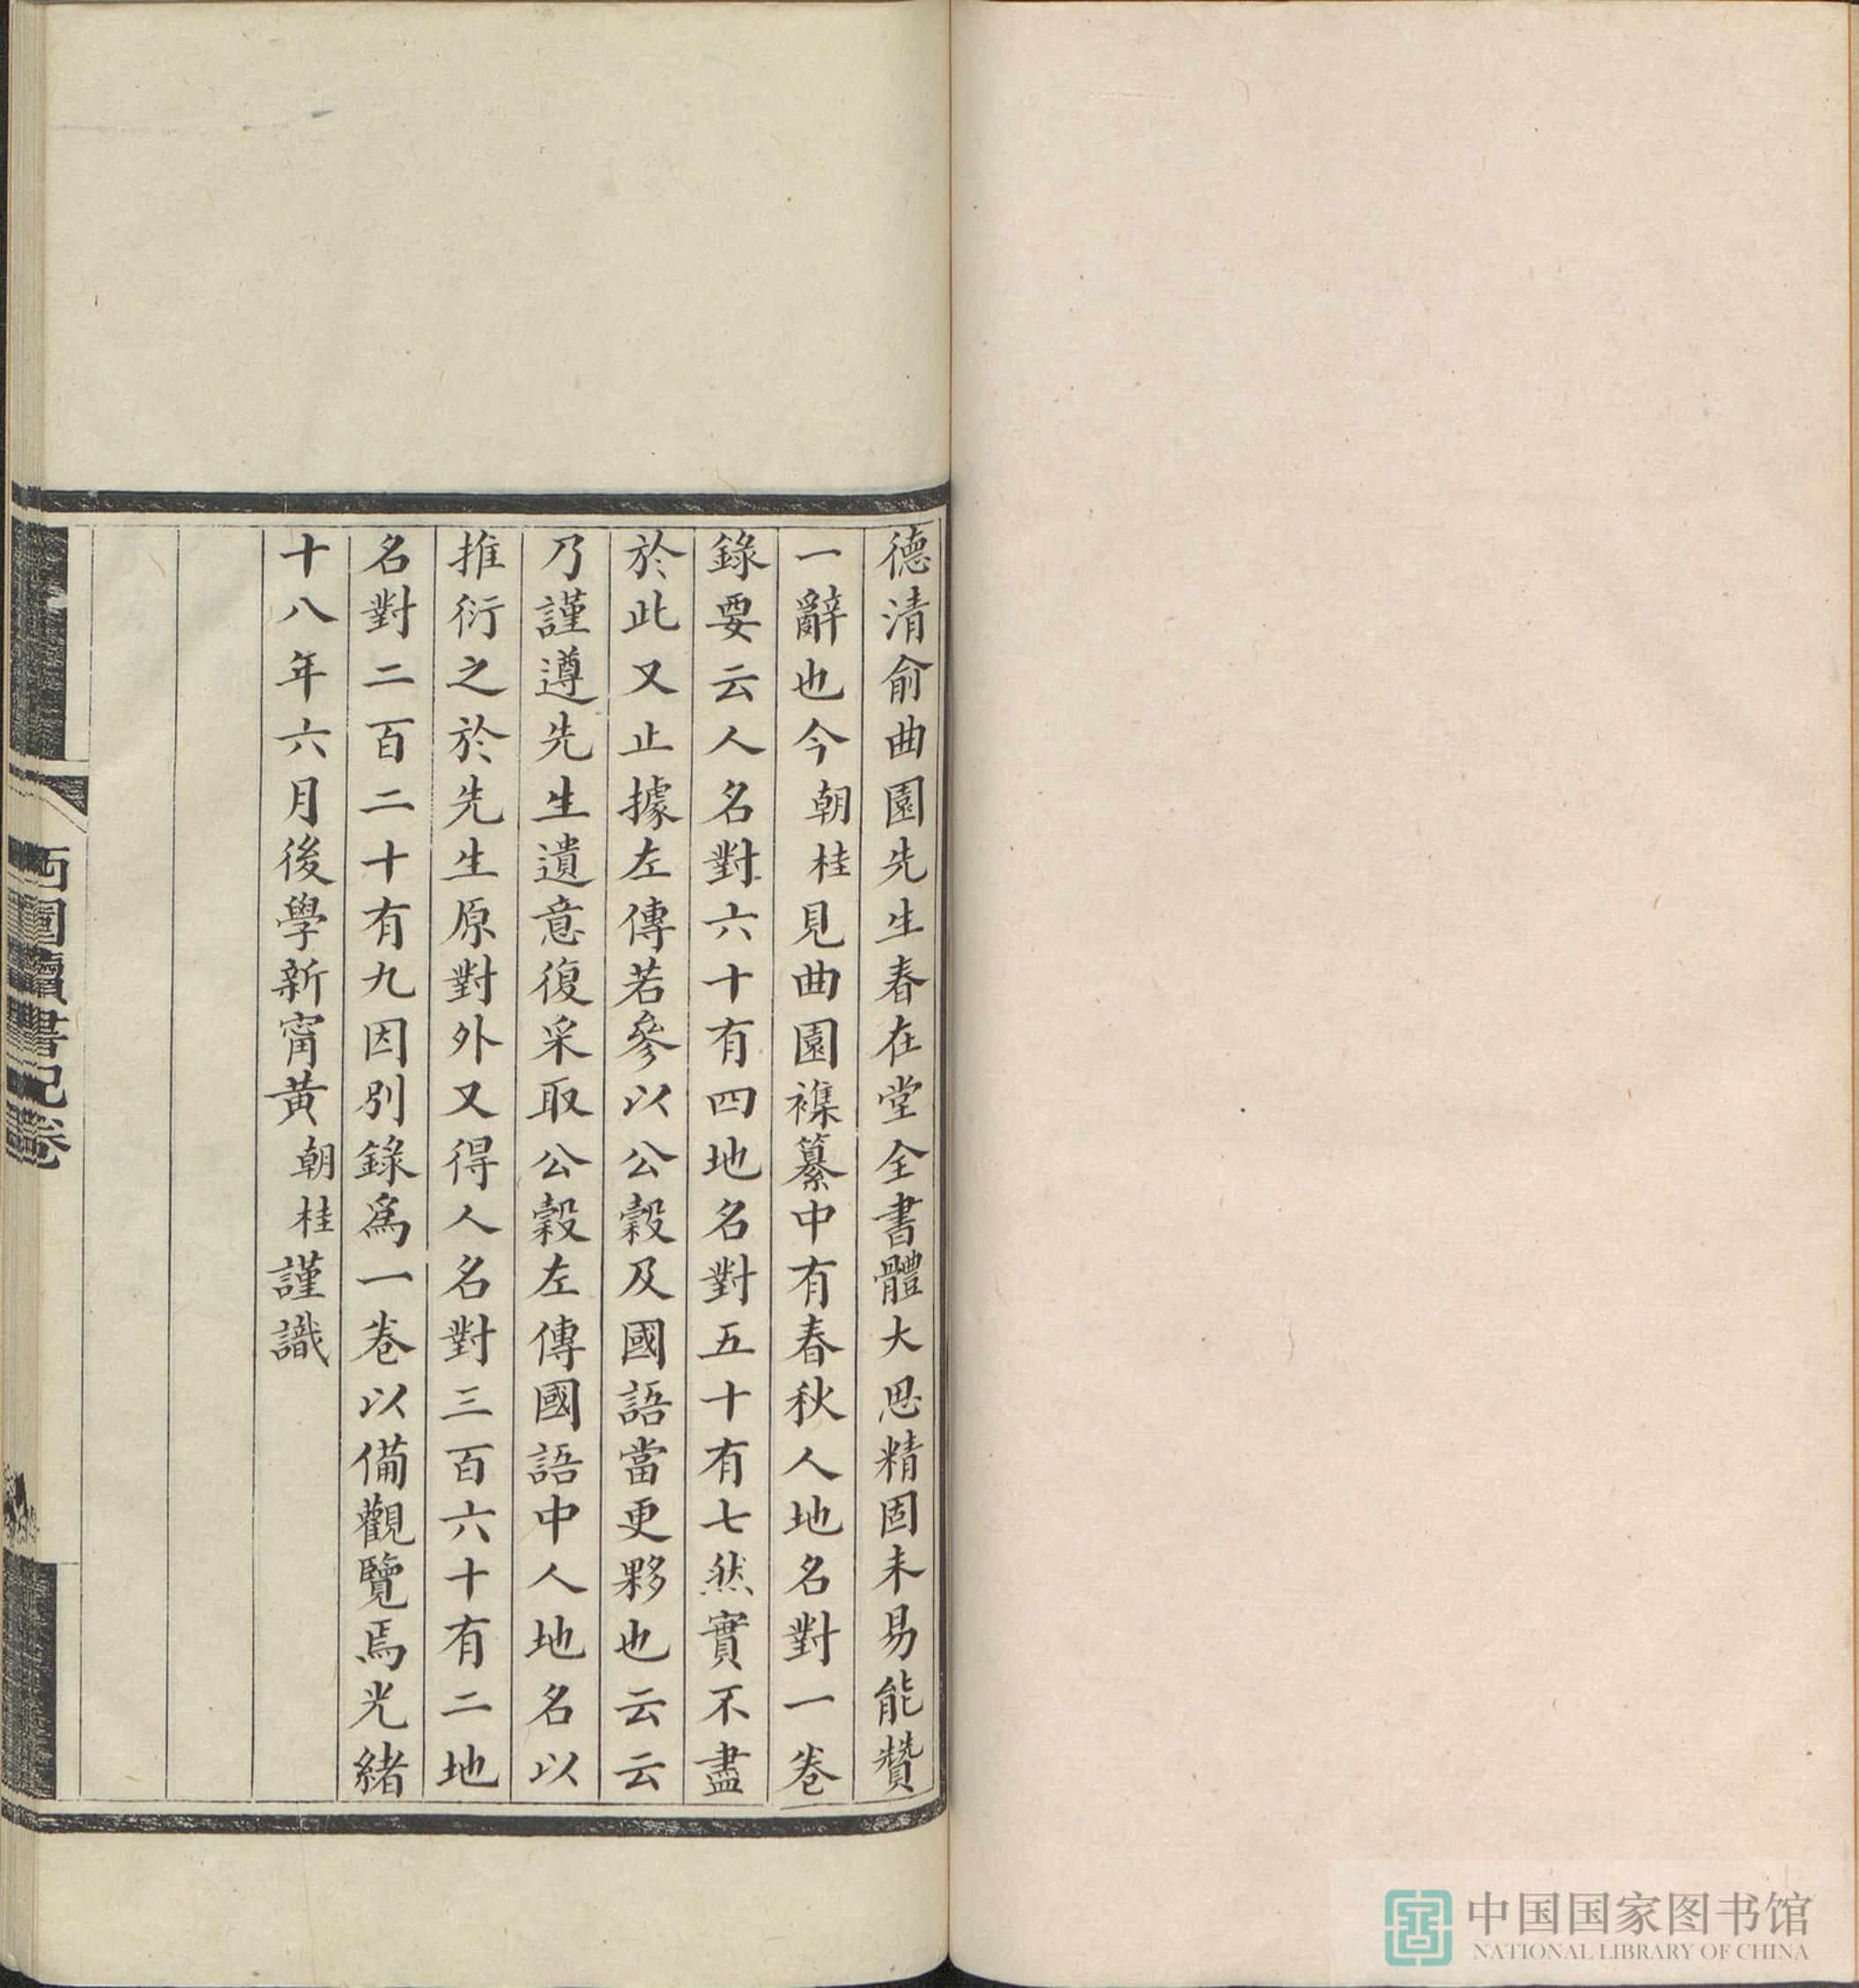 德清俞曲園先生春在堂全書體大思精固未易能贊
一辭也今朝桂見曲園襍纂中有春秋人地名對一卷
錄要云人名對六十有四地名對五十有七然實不盡
於此又止據左傳若參以公穀及國語當更夥也云云
乃謹遵先生遺意復采取公穀左傳國語中人地名以
推衍之於先生原對外又得人名對三百六十有二地
名對二百二十有九因別錄爲一卷以備觀覽焉光緒
十八年六月後學新甯黃朝桂謹識
園讀書記卷
中国国家图书馆
NATIONAL LIBRARY OF CHINA